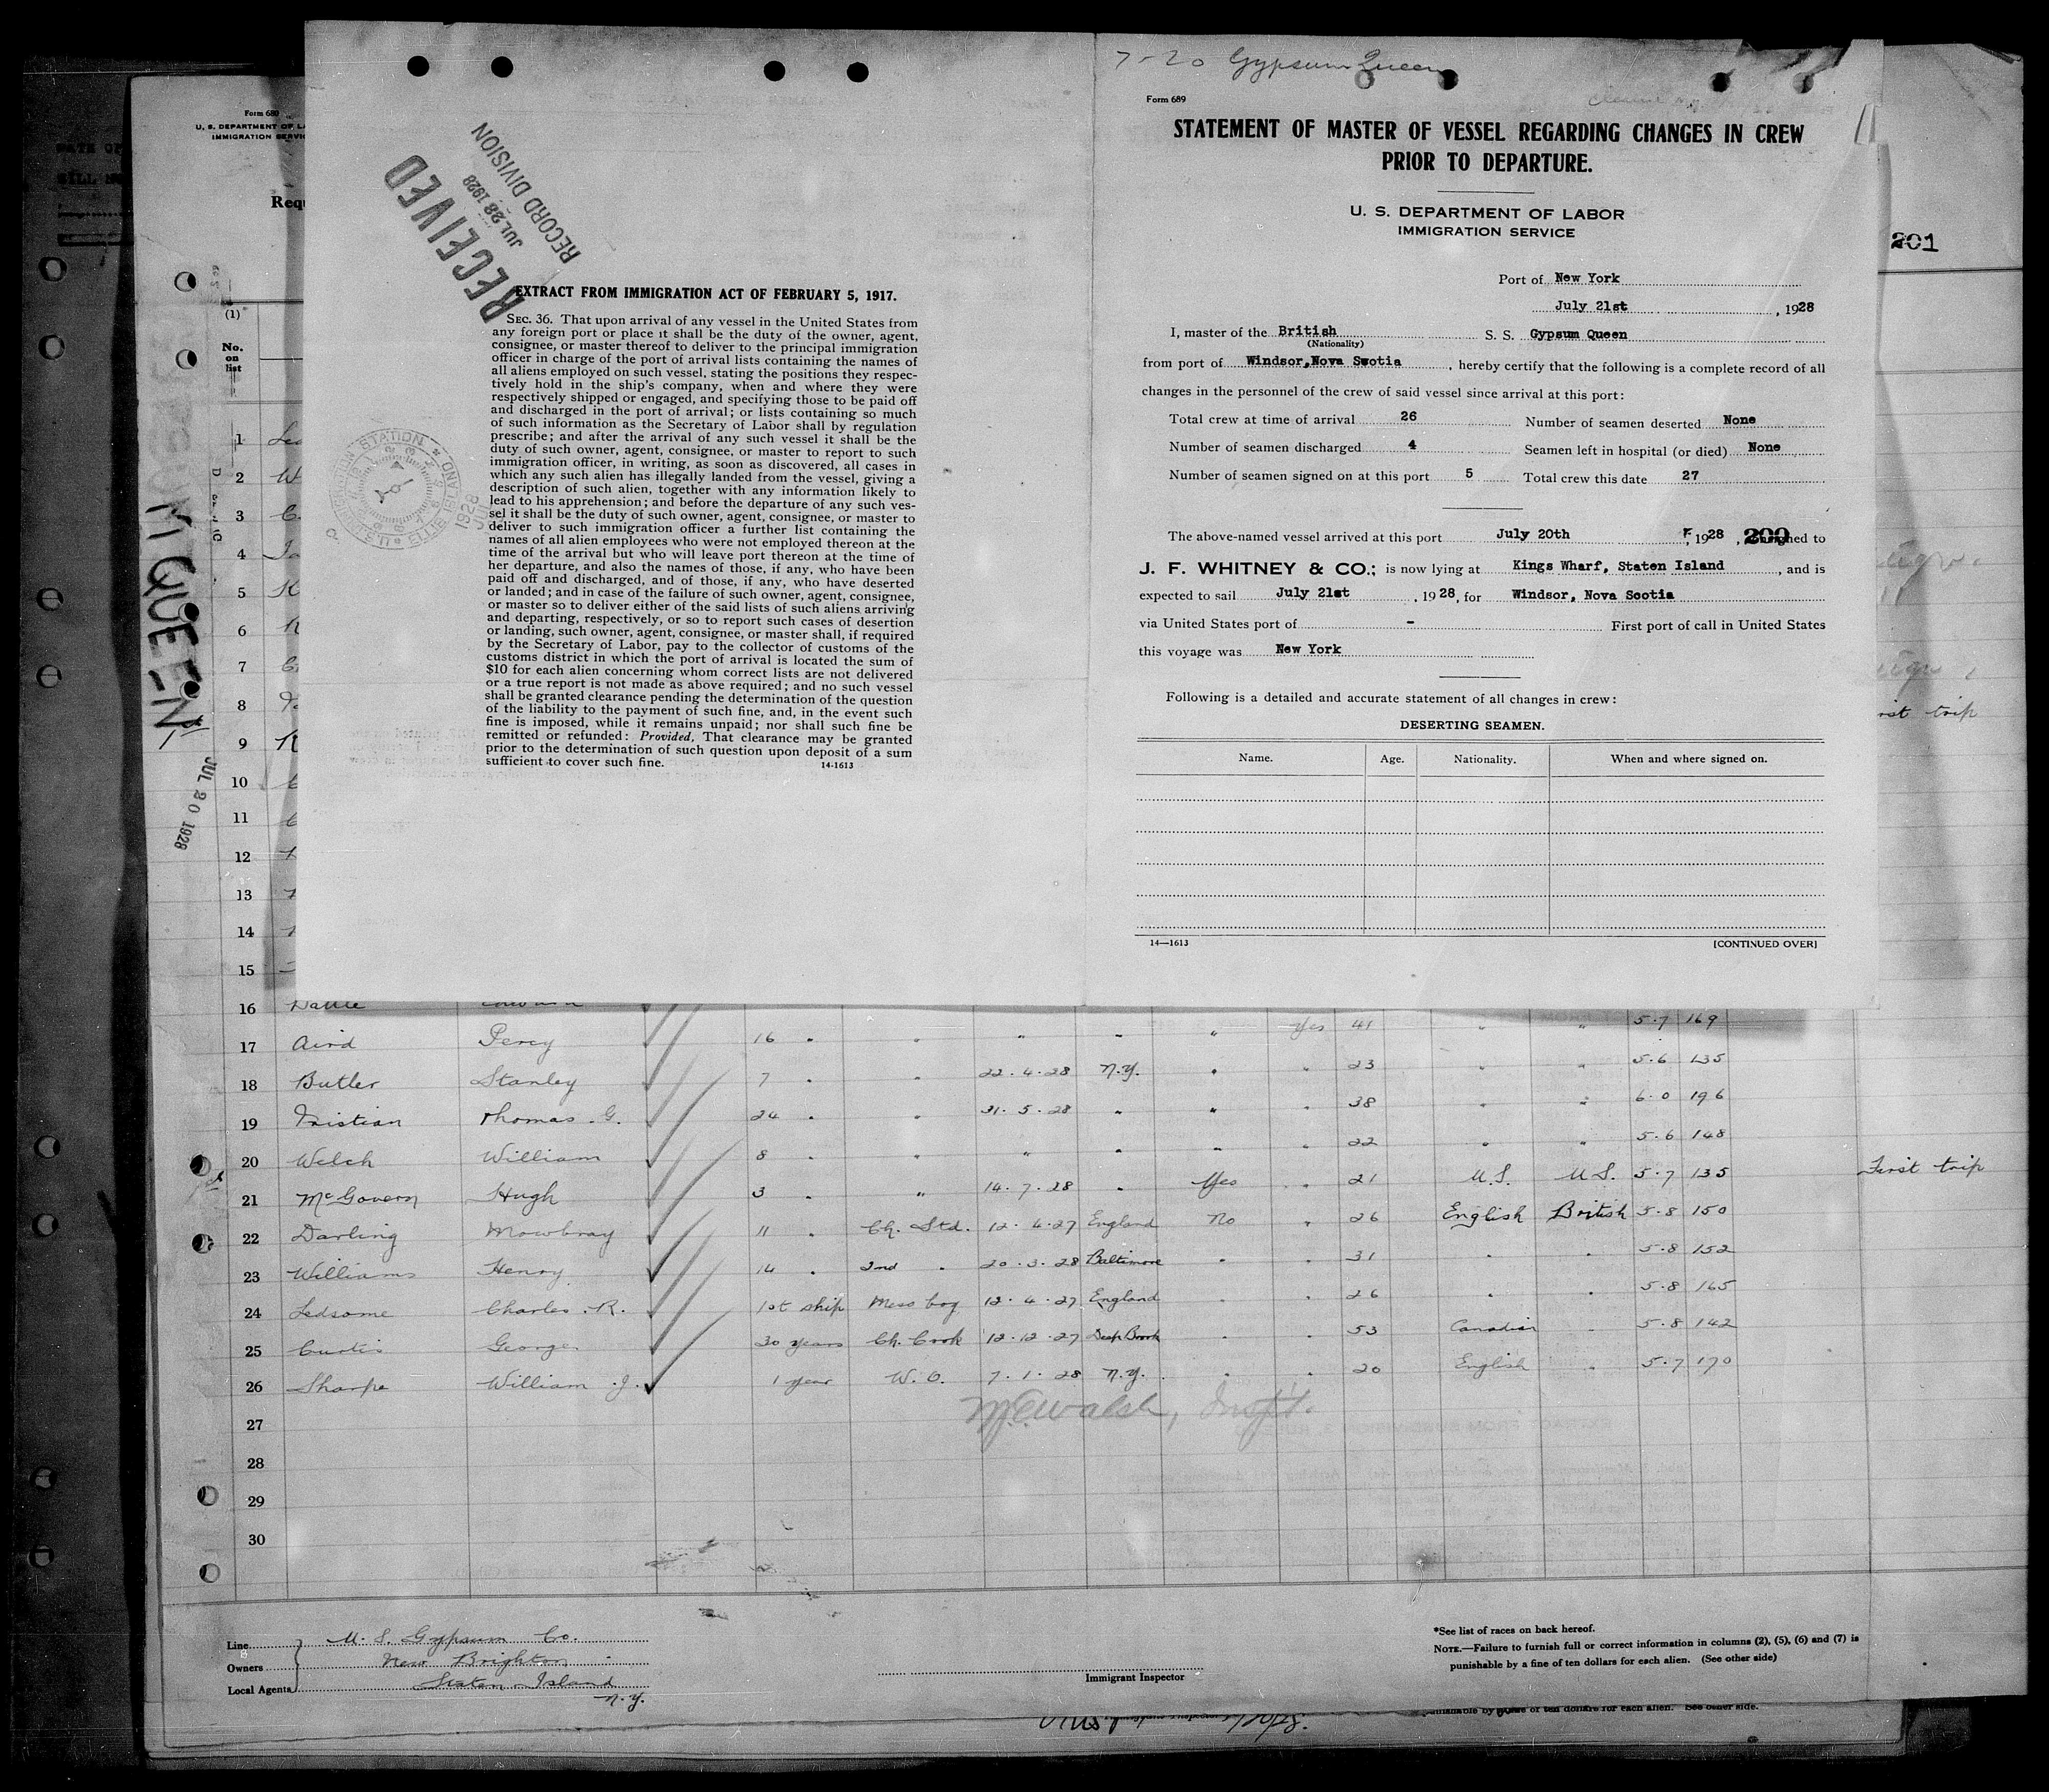 7-20 Gypsum Queen
Form 689
STATEMENT OF MASTER OF VESSEL REGARDING CHANGES IN CREW
PRIOR TO DEPARTURE.
U. S. DEPARTMENT OF LABOR
IMMIGRATION SERVICE
Port of New York
July 21st, 1928
I, master of the British S. S. Gypsum Queen
(Nationality)
from port of Windsor,Nova Swotia, hereby certify that the following is a complete record of all
changes in the personnel of the crew of said vessel since arrival at this port:
Total crew at time of arrival 26 Number of seamen deserted None
Number of seamen discharged 4 Seamen left in hospital (or died) None
Number of seamen signed on at this port 5 Total crew this date 27
The above-named vessel arrived at this port July 20th, 1928, 200 ned to
J. F. WHITNEY & CO.; is now lying at Kings Wharf, Staten Island, and is
expected to sail July 21st, 1928, for Windsor, Nova Scotia
via United States port of - First port of call in United States
this voyage was New York
Following is a detailed and accurate statement of all changes in crew:
DESERTING SEAMEN.
Name. Age. Nationality. When and where signed on.
14—1613 [CONTINUED OVER]
RECEIVED
JUL 28 1928
RECORD DIVISION
EXTRACT FROM IMMIGRATION ACT OF FEBRUARY 5, 1917.
SEC. 36. That upon arrival of any vessel in the United States from
any foreign port or place it shall be the duty of the owner, agent,
consignee, or master thereof to deliver to the principal immigration
officer in charge of the port of arrival lists containing the names of
all aliens employed on such vessel, stating the positions they respec-
tively hold in the ship's company, when and where they were
respectively shipped or engaged, and specifying those to be paid off
and discharged in the port of arrival; or lists containing so much
of such information as the Secretary of Labor shall by regulation
prescribe; and after the arrival of any such vessel it shall be the
duty of such owner, agent, consignee, or master to report to such
immigration officer, in writing, as soon as discovered, all cases in
which any such alien has illegally landed from the vessel, giving a
description of such alien, together with any information likely to
lead to his apprehension; and before the departure of any such ves-
sel it shall be the duty of such owner, agent, consignee, or master to
deliver to such immigration officer a further list containing the
names of all alien employees who were not employed thereon at the
time of the arrival but who will leave port thereon at the time of
her departure, and also the names of those, if any, who have been
paid off and discharged, and of those, if any, who have deserted
or landed; and in case of the failure of such owner, agent, consignee,
or master so to deliver either of the said lists of such aliens arriving
and departing, respectively, or so to report such cases of desertion
or landing, such owner, agent, consignee, or master shall, if required
by the Secretary of Labor, pay to the collector of customs of the
customs district in which the port of arrival is located the sum of
$10 for each alien concerning whom correct lists are not delivered
or a true report is not made as above required; and no such vessel
shall be granted clearance pending the determination of the question
of the liability to the payment of such fine, and, in the event such
fine is imposed, while it remains unpaid; nor shall such fine be
remitted or refunded: Provided, That clearance may be granted
prior to the determination of such question upon deposit of a sum
sufficient to cover such fine. 14-1613
Form 680
U. S. DEPARTMENT OF LA
IMMIGRATION SERVIC
Requ
201
(1)
No.
on
list
1
2
3
4
5
6
7
8 rst trip
9
10
11
12
13
14
15
16
QUEEN
JUL 20 1928
Yes 41 " " 5.7 169
17 Aird Percy 16 " " " " " " 23 " " 5.6 135
18 Butler Stanley 7 " " 22.4.28 N.Y. " " 38 " " 6.0 196
19 Tristian Thomas G. 24 " " 31.5.28 " " " 22 " " 5.6 148
20 Welch William 8 " " " " Yes " 21 U.S. U.S. 5.7 135 First trip
21 McGovern Hugh 3 " " 14.7.28 " No " 26 English British 5.8 150
22 Darling Mowbray 11 " Ch. Std. 12.4.27 England " " 31 " " 5.8 152
23 Williams Henry 14 " 2nd " 20.3.28 Baltimore " " 26 " " 5.8 165
24 Ledsome Charles R. 1st ship Mess boy 12.4.27 England " " 53 Canadian " 5.8 142
25 Curtis George 30 years Ch. Cook 12.12.27 Deep Brook " " 20 English " 5.7 170
26 Sharpe William J. 1 year W. O. 7.1.28 N.Y.
M.E. Walsh, Inspt.
27
28
29
30
Line U. S. Gypsum Co.
Owners New Brighton
Local Agents Staten Island
N.Y.
Immigrant Inspector
*See list of races on back hereof.
NOTE.—Failure to furnish full or correct information in columns (2), (5), (6) and (7) is
punishable by a fine of ten dollars for each alien. (See other side)
of ten dollars for each alien. See other side.